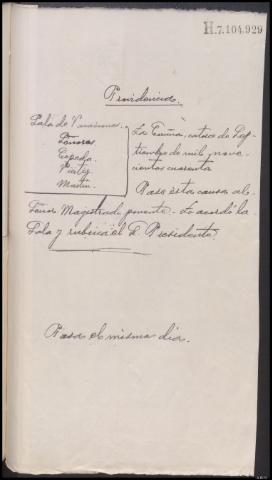 H.7.104.929
Providencia.
Sala de Vacaciones.
Señores
Cepeda.
Martín.
La Coruña, catorce de Sep-
tiembre de mil nove-
cientos cuarenta
Pase esta causa al
Señor Magistrado ponente.- Lo acordó la
Sala y rubrica el Sr. Presidente.
Pasa el mismo día.